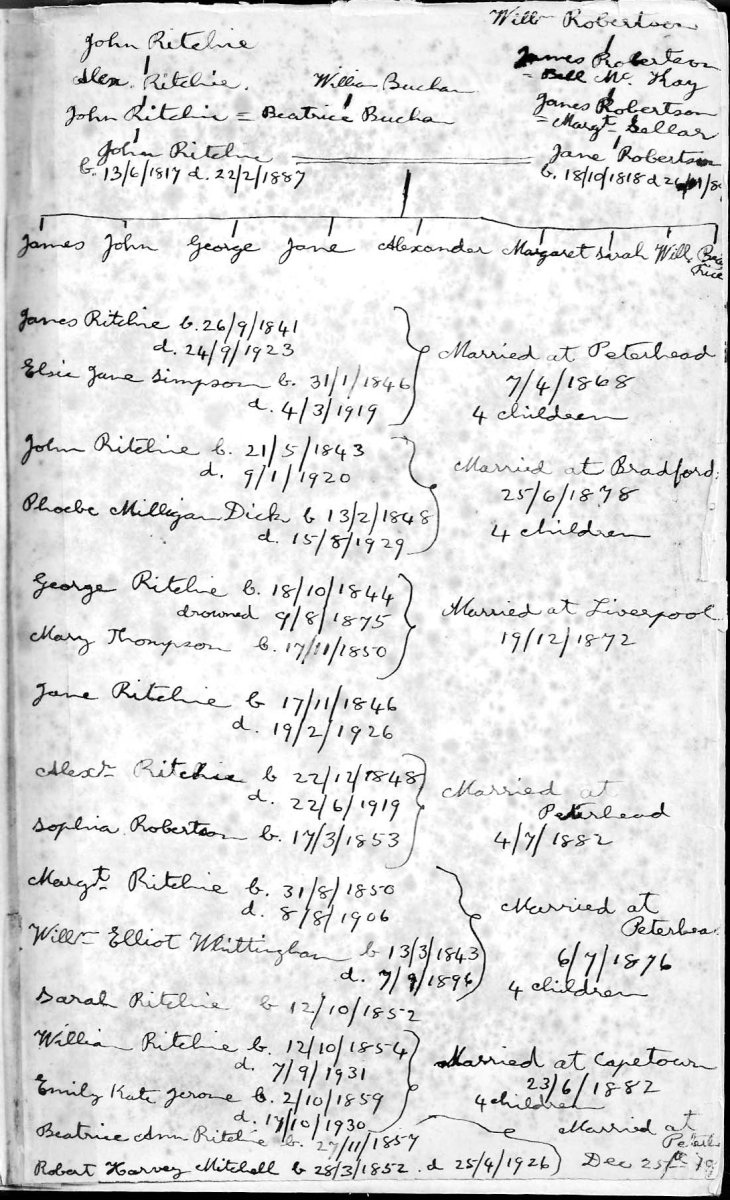 Willm Robertson
John Ritchie
James Robertson
Alex. Ritchie. William Buchan
= Bell Mc. Kay
John Ritchie = Beatrice Buchan
James Robertson
= Margt Sellar
John Ritchie
Jane Robertson
b. 13/6/1817 d. 22/2/1887
b. 18/10/1818 d
James John George Jane Alexander Margaret Sarah Will. Bea
trice
James Ritchie b. 26/9/1841
d. 24/9/1923
Married at Peterhead
Elsie Jane Simpson b. 31/1/1846
7/4/1868
d. 4/3/1919
4 children
John Ritchie b. 21/5/1843
d. 9/1/1920
Married at Bradford.
25/6/1878
Phoebe Milligan Dick b 13/2/1848
d. 15/8/1929
4 children
George Ritchie b. 18/10/1844
drowned 9/8/1875
Married at Liverpool
Mary Thompson b. 17/11/1850
19/12/1872
Jane Ritchie b 17/11/1846
d. 19/2/1926
Alexr Ritchie b 22/12/1848
d. 22/6/1919
Married at
Peterhead
Sophia Robertson b. 17/3/1853
4/7/1882
Margt Ritchie b. 31/8/1850
d. 8/8/1906
Married at
Peterhea
Willm Elliot Whittingham b 13/3/1843
6/7/1876
d. 7/9/1896
4 children
Sarah Ritchie b 12/10/1852
William Ritchie b. 12/10/1854
d. 7/9/1931
Married at Capetown
23/6/1882
Emily Kate Jerome b. 2/10/1859
4 children
d. 17/10/1930
Married at
Beatrice Ann Ritchie b. 27/11/1857
Robert Harvey Mitchell b 28/3/1852. d 25/4/1926
Dec 25th